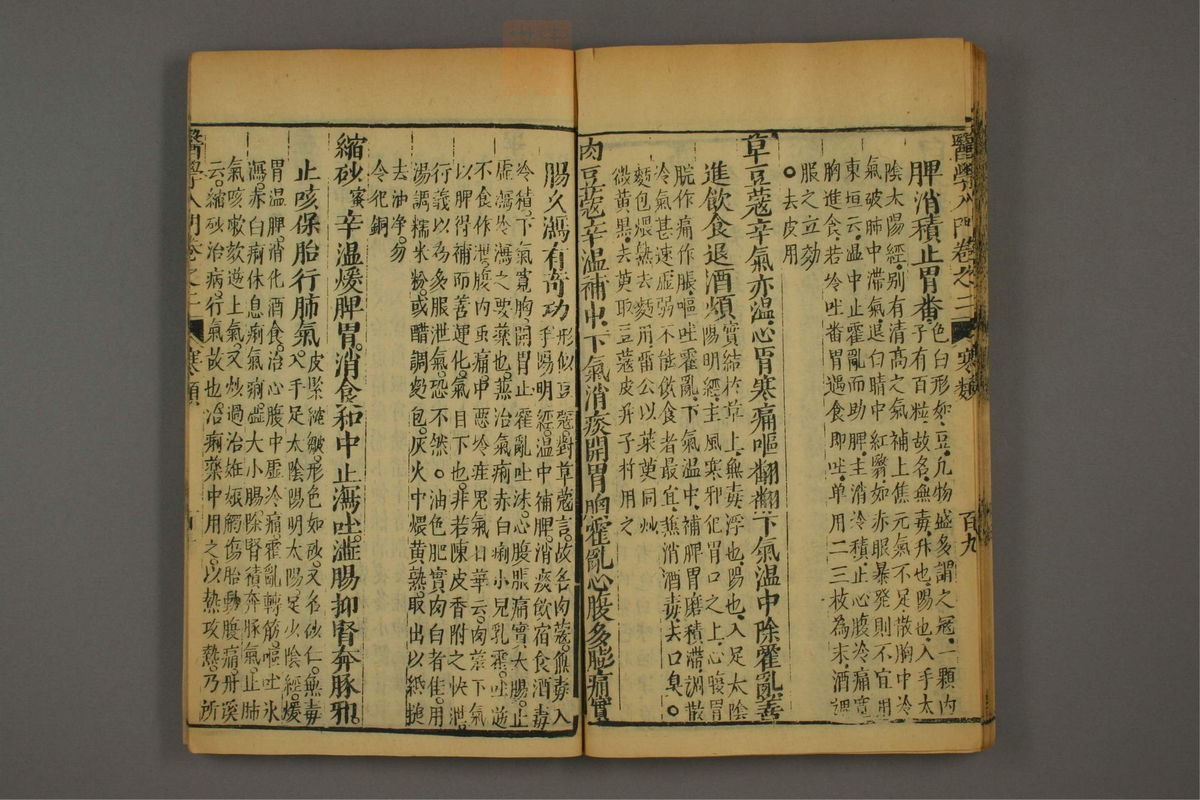 醫學入門卷之二 寒類 百九
脾消積止胃番
色白形如豆凡物盛多謂之寇一顆內
子有百粒故名無毒升也陽也入手太
陰太陽經別有清高之氣補上焦元氣不足散胸中冷
氣破肺中滯氣退白睛中紅翳如赤眼暴發則不宜用
東垣云温中止霍亂而助脾主消冷積止心腹冷痛寬
胸進食若冷吐番胃遇食即吐單用二三枚為末酒調
服之立効
○去皮用
草豆蔻辛氣亦温心胃寒痛嘔翻翻下氣温中除霍亂善
進飲食退酒煩
實結於草上無毒浮也陽也入足太陰
陽明經主風寒邪犯胃口之上心腹胃
脘作痛作脹嘔吐霍亂下氣温中補脾胃磨積滯調散
冷氣甚速虛弱不能飲食者最宜兼消酒毒去口臭○
麵包煨熟去麵用雷公以茱萸同炒
微黃黑去萸取豆蔻皮并子杵用之
肉豆蔻辛温補中下氣消痰開胃胸霍亂心腹多膨痛實
腸久瀉有奇功
形似豆蔻對草蔻言故名肉蔻無毒入
手陽明經温中補脾消痰飲宿食酒毒
冷積下氣寬胸開胃止霍亂吐沫心腹脹痛實大腸止
虛瀉冷瀉之要藥也兼治氣痢赤白痢小兒乳霍吐逆
不食作泄腹內虫痛中惡冷疰鬼氣日華云肉蔻下氣
以脾得補而善運化氣自下也非若陳皮香附之快泄
行義以為多服泄氣恐不然○油色肥實肉白者佳用
湯調糯米粉或醋調麪包灰火中煨黃熟取出以紙搥
去油淨勿
令犯銅
縮砂蜜辛温煖脾胃消食和中止瀉吐澁腸抑腎奔豚邪
止咳保胎行肺氣
皮緊縮皺形色如砂又名砂仁無毒
入手足太陰陽明太陽足少陰經煖
胃温脾消化酒食治心腹中虛冷痛霍亂轉筋嘔吐氷
瀉赤白痢休息痢氣痢澁大小腸除腎積奔豚氣止肺
氣咳嗽欬逆上氣又炒過治姙娠觸傷胎動腹痛丹溪
云縮砂治病行氣故也治痢藥中用之以熱攻熱乃所
醫學入門卷之二 寒類